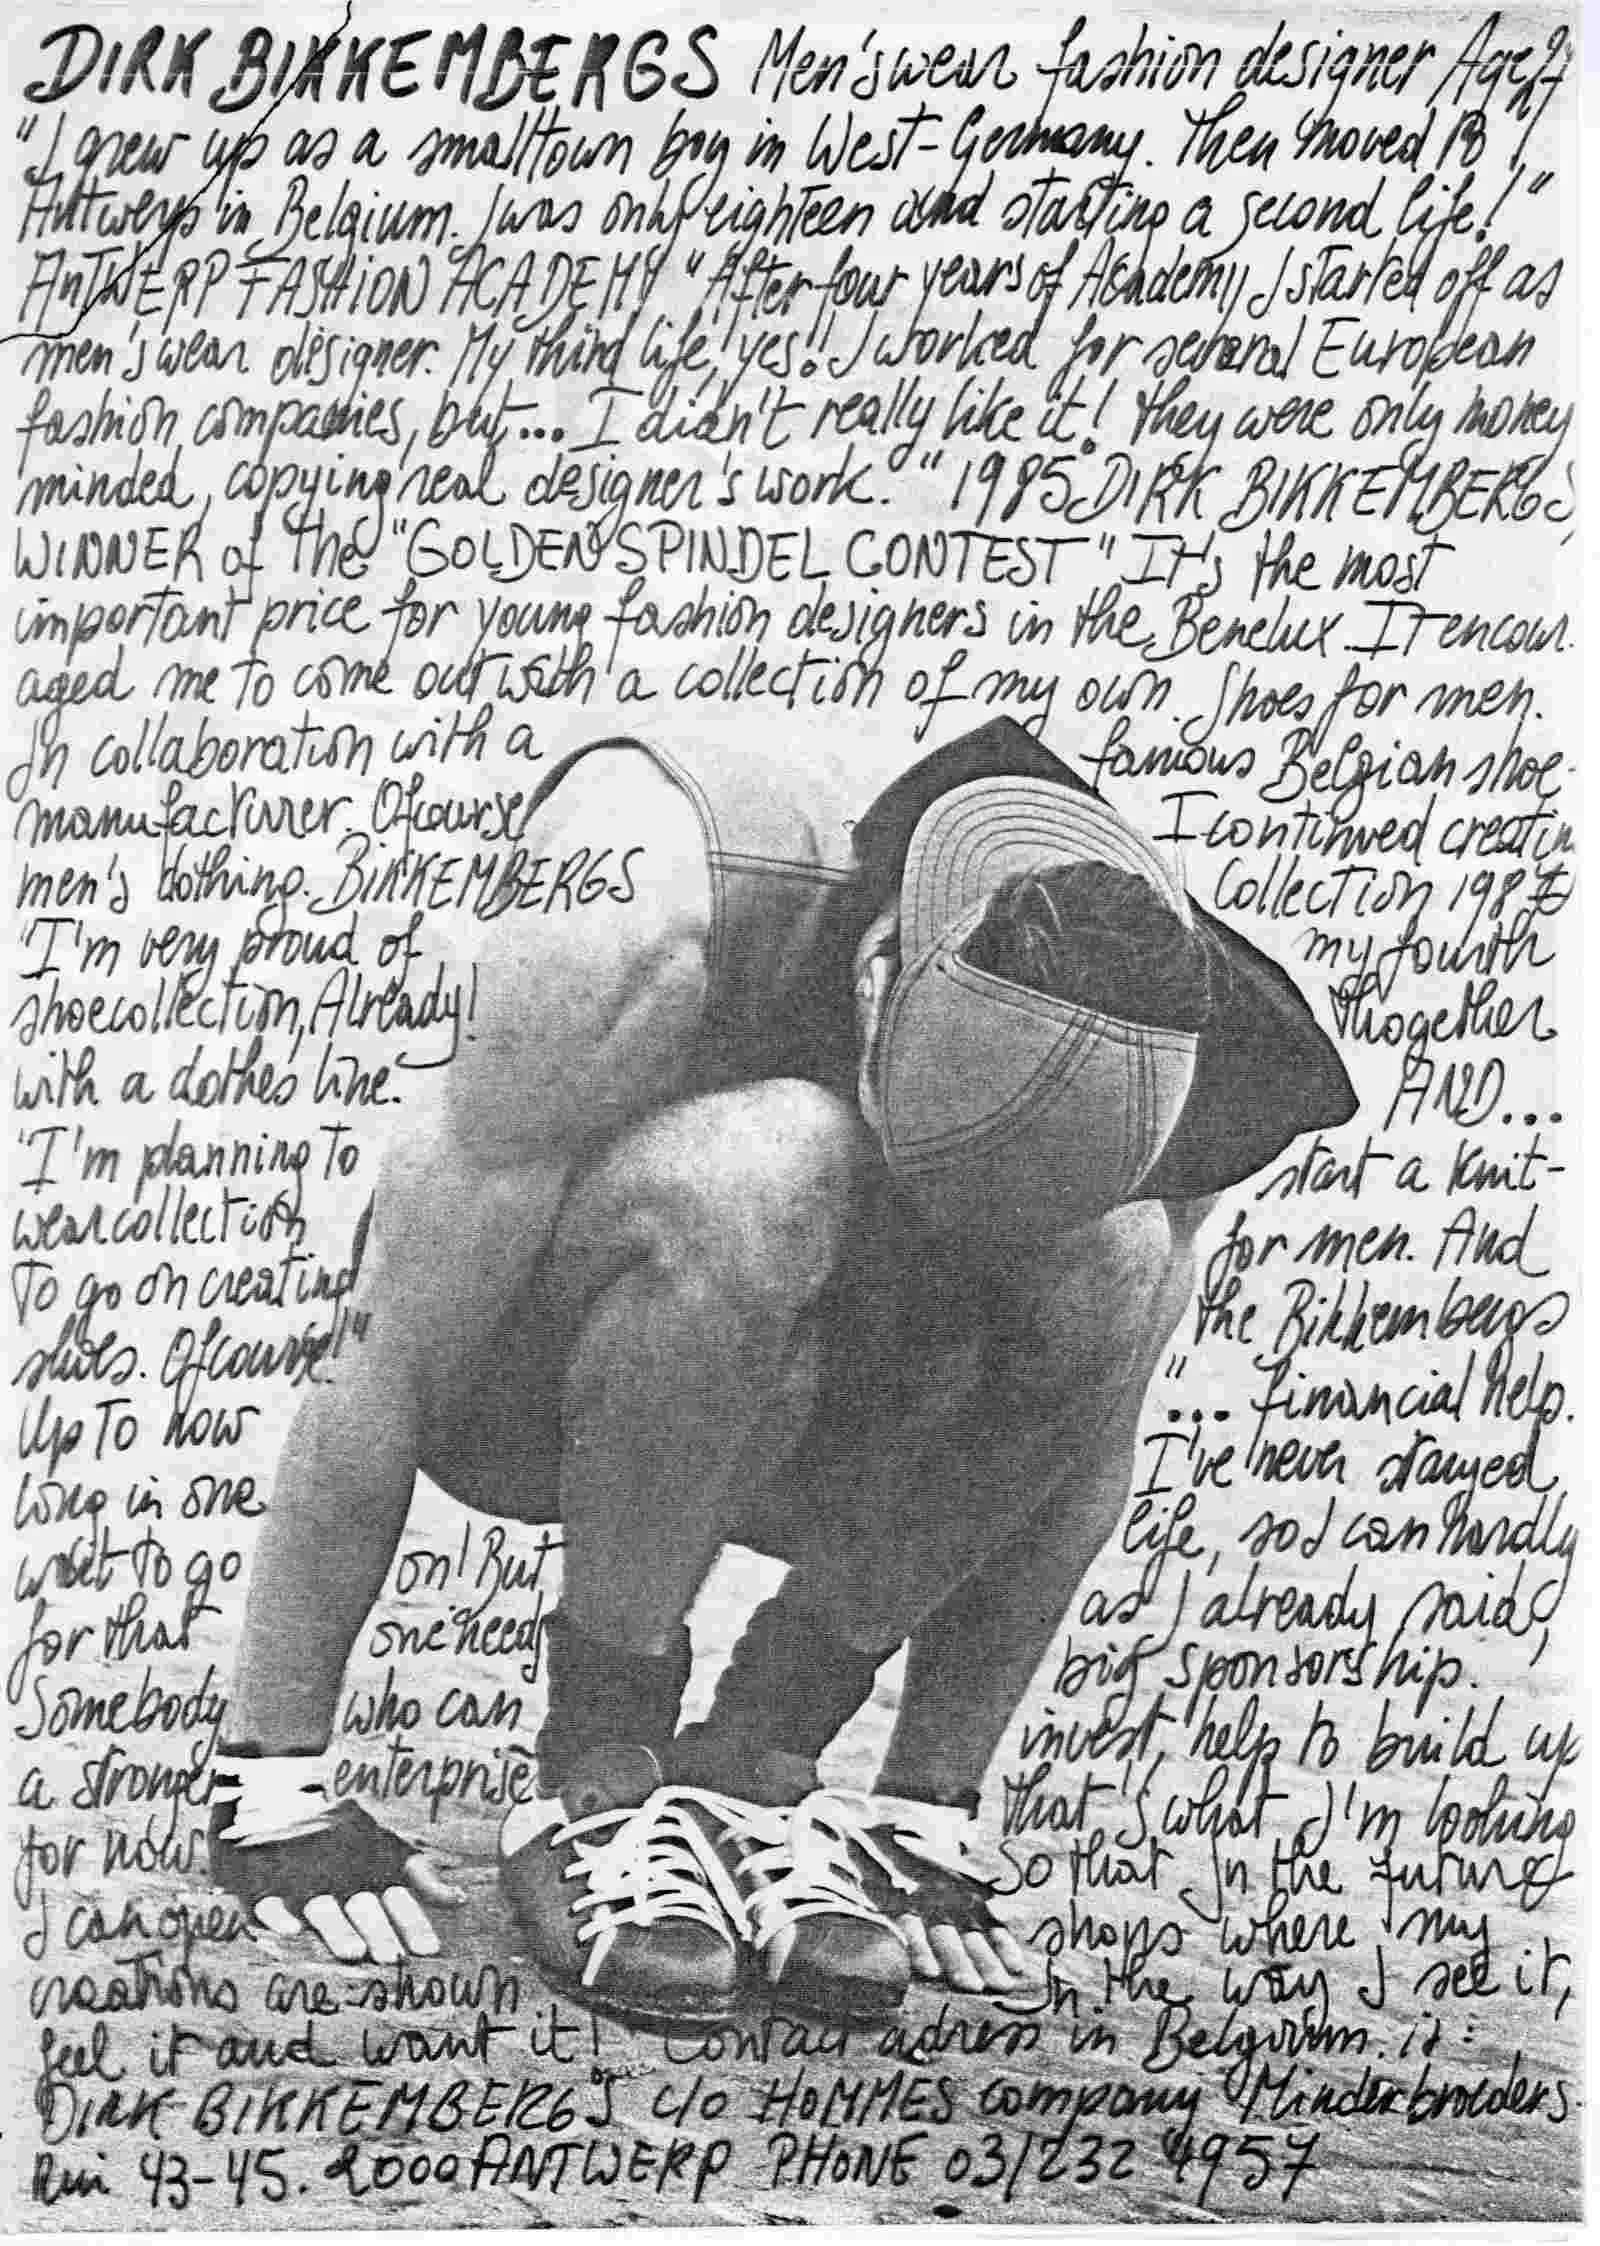 DIRK BIKKEMBERGS Men's wear fashion designer Age 27
"I grew up as a smalltown boy in West-Germany. Then moved to
Antwerp in Belgium. I was only eighteen and starting a second life!"
ANTWERP FASHION ACADEMY "After four years of Academy I started off as
men's wear designer. My third life, yes! I worked for several European
fashion companies, but... I didn't really like it! They were only money
minded, copying real designer's work." 1985 DIRK BIKKEMBERGS,
WINNER of the "GOLDEN SPINDEL CONTEST" It's the most
important price for young fashion designers in the Benelux. It encour-
aged me to come out with a collection of my own. Shoes for men.
In collaboration with a famous Belgian shoe-
manufacturer. Ofcourse I continued creatin
men's clothing. BIKKEMBERGS Collection 1987
"I'm very proud of my fourth
shoecollection, Already! thogether
with a clothes line. AND...
"I'm planning to start a knit-
wearcollection for men. And
to go on creating the Bikkembergs
shoes. Ofcourse!" "... financial help.
Up to now I've never stayed
long in one life, so I can hardly
wait to go on! But as I already said,
for that one needs big sponsorship.
Somebody who can invest, help to build up
a stronger enterprise that's what I'm looking
for now. So that In the future
I can open shops where my
creations are shown In the way I see it,
feel it and want it! Contact adress in Belgium. is:
DIRK BIKKEMBERGS c/o HOMMES company Minderbroeders
Rui 43-45. 2000 ANTWERP PHONE 03/232 4957